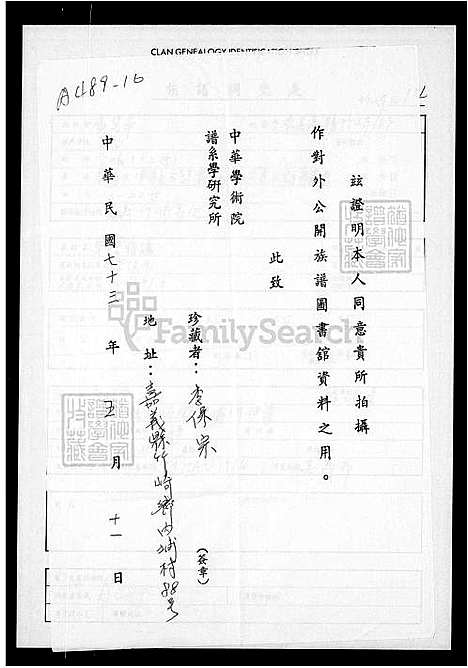 CLAN GENEALOGY IDENTIFICATION
A489-16
茲證明本人同意貴所拍攝
作對外公開族譜圖書館資料之用。
此致
中華學術院
譜系學研究所
珍藏者：李保宗
(簽章)
地址：嘉義縣竹崎鄉內埔村88号
中華民國七十三年五月十一日
FamilySearch